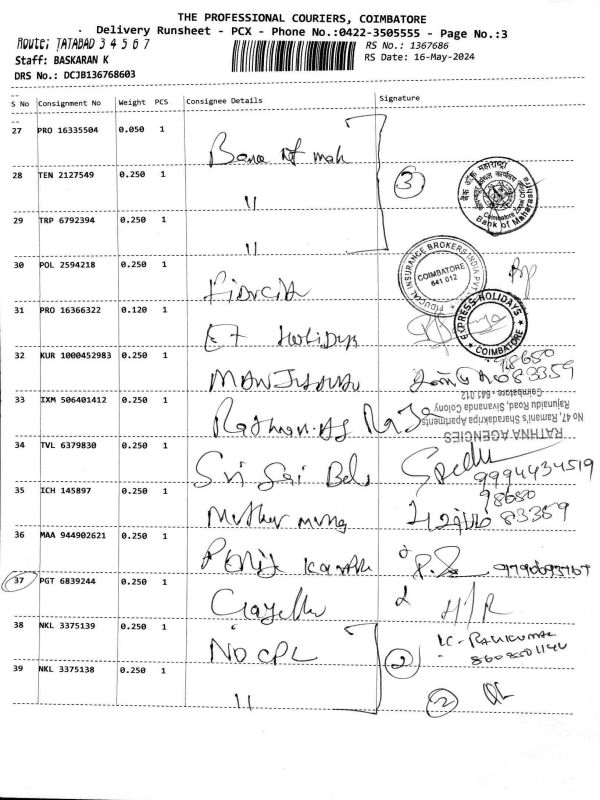 THE PROFESSIONAL COURIERS, COIMBATORE
Delivery Runsheet - PCX - Phone No.:0422-3505555 - Page No.:3
Route: TATABAD 3 4 5 6 7
RS No.: 1367686
Staff: BASKARAN K
RS Date: 16-May-2024
DRS No.: DCJB136768603
S No Consignment No Weight PCS Consignee Details Signature
27 PRO 16335504 0.050 1 Bank of mah
28 TEN 2127549 0.250 1 "
3
बैंक ऑफ महाराष्ट्र
Coimbatore Zonal Office
Bank of Maharashtra
29 TRP 6792394 0.250 1 "
30 POL 2594218 0.250 1 Fiducia
FIDUCIAL INSURANCE BROKERS INDIA PVT
COIMBATORE
641 012
31 PRO 16366322 0.120 1 Ex Holidys
EXPRESS HOLIDAYS
COIMBATORE
32 KUR 1000452983 0.250 1
98650
83359
33 IXM 506401412 0.250 1
RATHNA AGENCIES
No 47, Ramani's Sharadakripa Apartments
Rajunaidu Road, Sivananda Colony
Coimbatore - 641 012
34 TVL 6379830 0.250 1 Sri Sai
9994434519
35 ICH 145897 0.250 1 Muthu
98650
83359
36 MAA 944902621 0.250 1
37 PGT 6839244 0.250 1
38 NKL 3375139 0.250 1 NO CPL
2
39 NKL 3375138 0.250 1 "
2